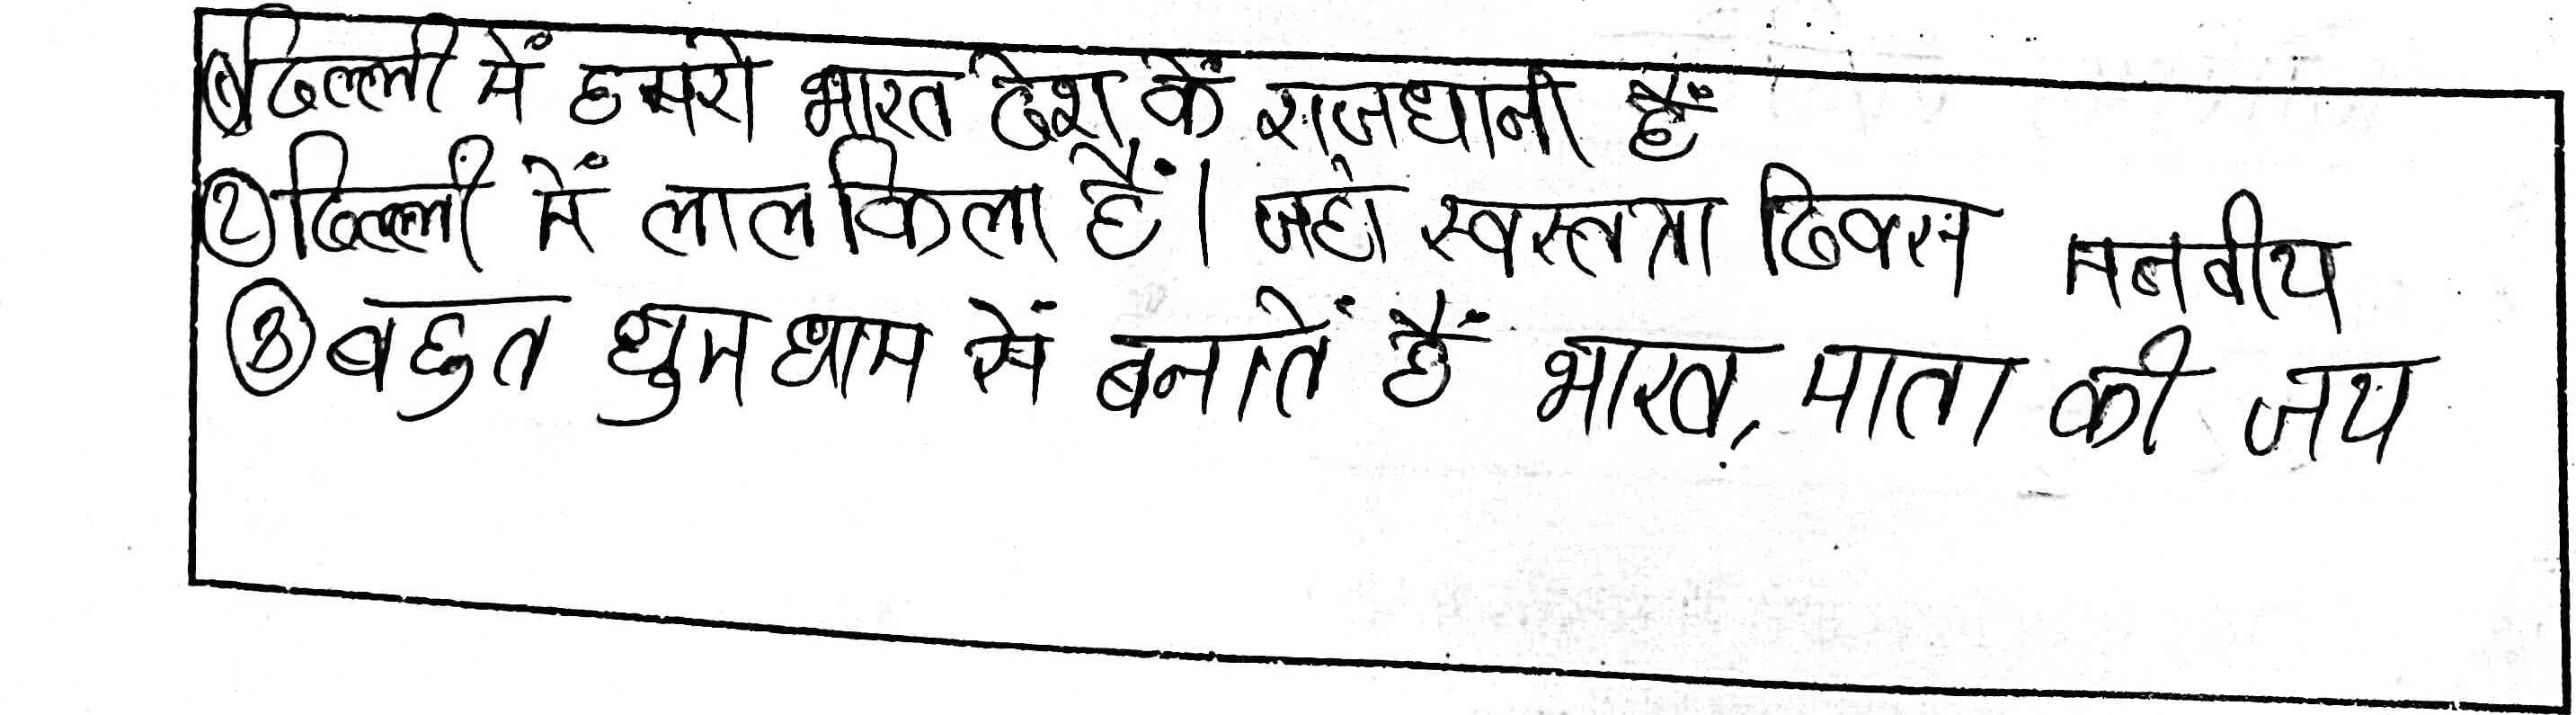 ① दिल्ली में हमरो भारत देश कें राजधानी हैं
② दिल्ली में लालकिला हैं। जहाँ स्वस्तत्रा दिवस मनवीय
③ बहुत धुमधाम सें बनातें हैं भारत, माता की जय